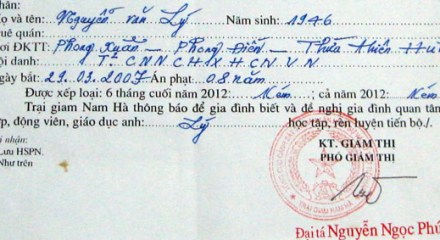 ọ và tên: Nguyễn văn Lý Năm sinh: 1946
uê quán:
ơi ĐKTT: Phong Xuân - Phong Điền - Thừa Thiên Hu
ội danh: T² CNN CHXHCNVN
gày bắt: 29.03.2007 Án phạt: 08 năm
Được xếp loại: 6 tháng cuối năm 2012: Kém ; cả năm 2012: Kém
Trại giam Nam Hà thông báo để gia đình biết và đề nghị gia đình quan tâm
p, động viên, giáo dục anh: Lý học tập, rèn luyện tiến bộ./.
i nhận:
Lưu HSPN.
Như trên
KT. GIÁM THỊ
PHÓ GIÁM THỊ
Đại tá Nguyễn Ngọc Phú